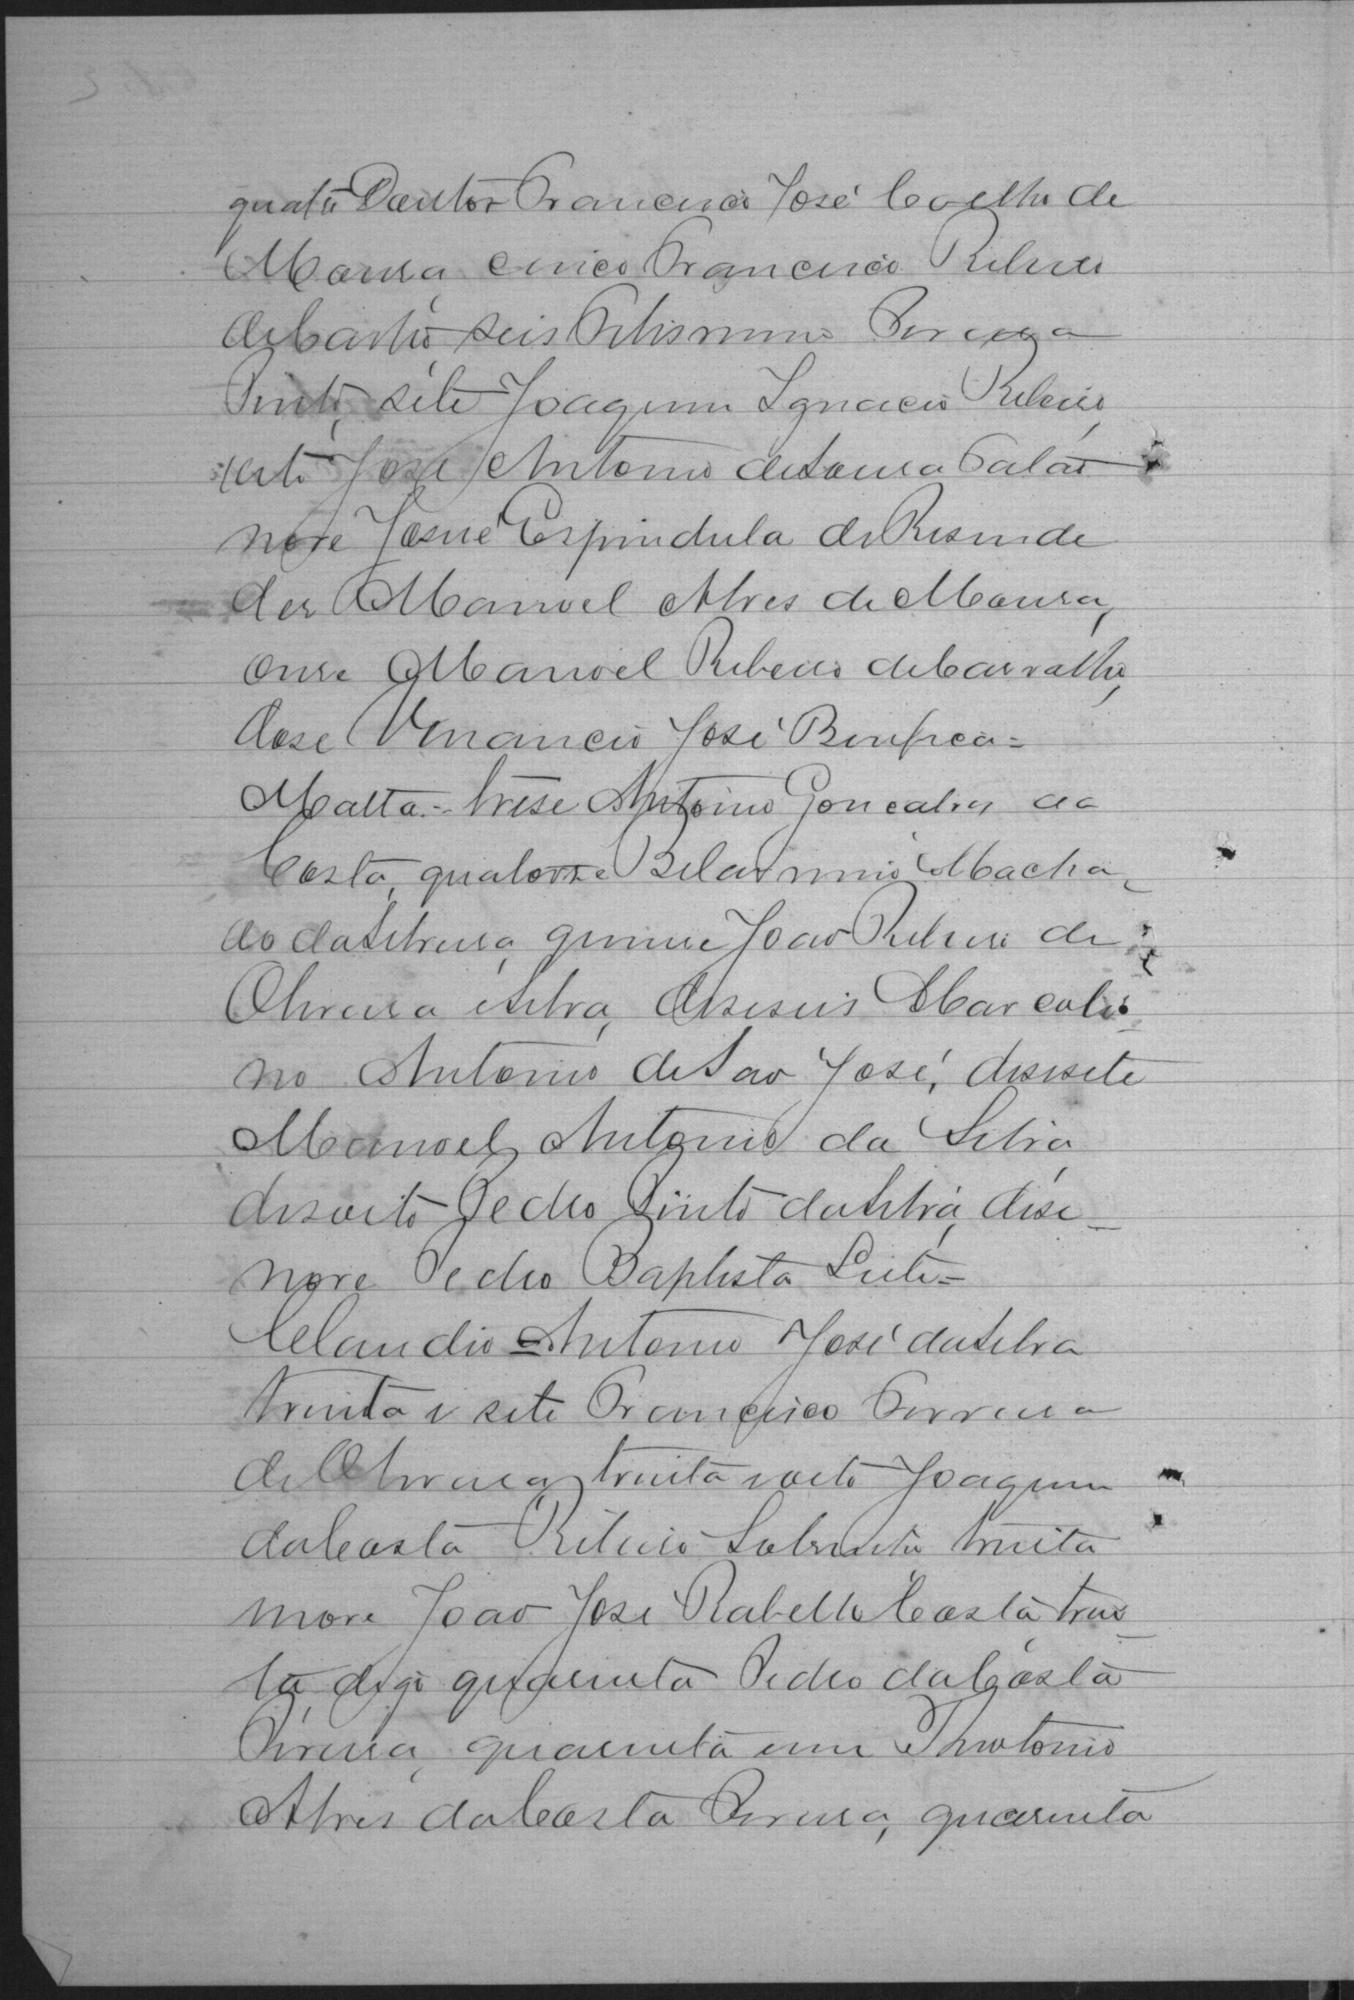 quatro Doutor Francisco José Coelho de
Moura, cinco Francisco Ribeiro
de Castro, seis Felismino Pereira
Pinto, sete Joaquim Ignacio Ribeiro,
oito José Antonio de Sousa Galão
nove Josué Espindula de Resende
des Manoel Alves de Moura,
onse Manoel Ribeiro de Carvalho,
dose Venancio José Bemfica=
Malta= trese Antonio Goncalves da
Costa, quatorse Belarmino Macha_
do da Silveira, quinse João Ribeiro de
Oliveira e Silva, deseseis Marcoli_
no Antonio de São José, desesete
Manoel Antonio da Silva
desoito Pedro Pinto da Silva, dese_
nove Pedro Baptista Leite=
Claudio = Antonio José da Silva
trinta e sete Francisco Ferreira
de Oliveira, trinta e oito Joaquim
da Costa Ribeiro Sobrinho trinta
nove João José Rabello Costa trin_
ta, digo quarenta Pedro da Costa
Pereira, quarenta um Theotonio
Alves da Costa Pereira, quarenta